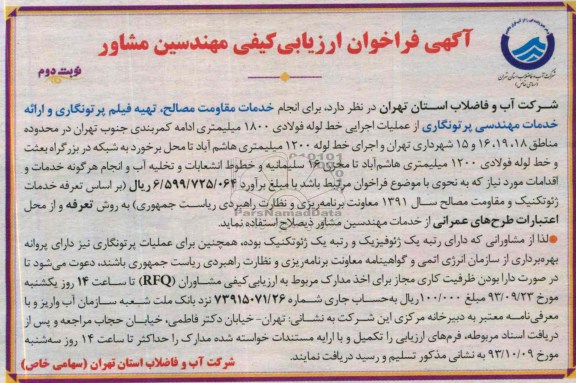 آگهی فراخوان ارزیابی‌کیفی مهندسین مشاور
شرکت آب و فاضلاب استان تهران
(سهامی خاص)
نوبت دوم
شرکت آب و فاضلاب استان تهران در نظر دارد، برای انجام خدمات مقاومت مصالح، تهیه فیلم پرتونگاری و ارائه
خدمات مهندسی پرتونگاری از عملیات اجرایی خط لوله فولادی ۱۸۰۰ میلیمتری ادامه کمربندی جنوب تهران در محدوده
مناطق ۱۸، ۱۹، ۱۶ و ۱۵ شهرداری تهران و اجرای خط لوله ۱۲۰۰ میلیمتری هاشم آباد تا محل برخورد به شبکه در بزرگراه بعثت
و خط لوله فولادی ۱۲۰۰ میلیمتری هاشم‌آباد تا مخزن ۱۶ سلیمانیه و خطوط انشعابات و تخلیه آب و انجام هرگونه خدمات و
اقدامات مورد نیاز که به نحوی با موضوع فراخوان مرتبط باشد با مبلغ برآورد ۶/۵۹۹/۷۳۵/۰۶۴ ریال (بر اساس تعرفه خدمات
ژئوتکنیک و مقاومت مصالح سال ۱۳۹۱ معاونت برنامه‌ریزی و نظارت راهبردی ریاست جمهوری) به روش تعرفه و از محل
اعتبارات طرح‌های عمرانی از خدمات مهندسین مشاور ذیصلاح استفاده نماید.
ParsNamadData
●لذا از مشاورانی که دارای رتبه یک ژئوفیزیک و رتبه یک ژئوتکنیک بوده، همچنین برای عملیات پرتونگاری نیز دارای پروانه
بهره‌برداری از سازمان انرژی اتمی و گواهینامه معاونت برنامه‌ریزی و نظارت راهبردی ریاست جمهوری باشند، دعوت می‌شود تا
در صورت دارا بودن ظرفیت کاری مجاز برای اخذ مدارک مربوط به ارزیابی‌کیفی مشاوران (RFQ) تا ساعت ۱۴ روز یکشنبه
مورخ ۹۳/۰۹/۲۳ مبلغ ۱۰۰/۰۰۰ ریال به‌حساب جاری شماره ۷۳۹۱۵۰۷۱/۲۶ نزد بانک ملت شعبه سازمان آب واریز و با
معرفی‌نامه معتبر به دبیرخانه مرکزی این شرکت به نشانی: تهران- خیابان دکتر فاطمی، خیابان حجاب مراجعه و پس از
دریافت اسناد مربوطه، فرم‌های ارزیابی را تکمیل و با ارایه مستندات خواسته شده مدارک را حداکثر تا ساعت ۱۴ روز سه‌شنبه
مورخ ۹۳/۱۰/۰۹ به نشانی مذکور تسلیم و رسید دریافت نمایند.
شرکت آب و فاضلاب استان تهران (سهامی خاص)